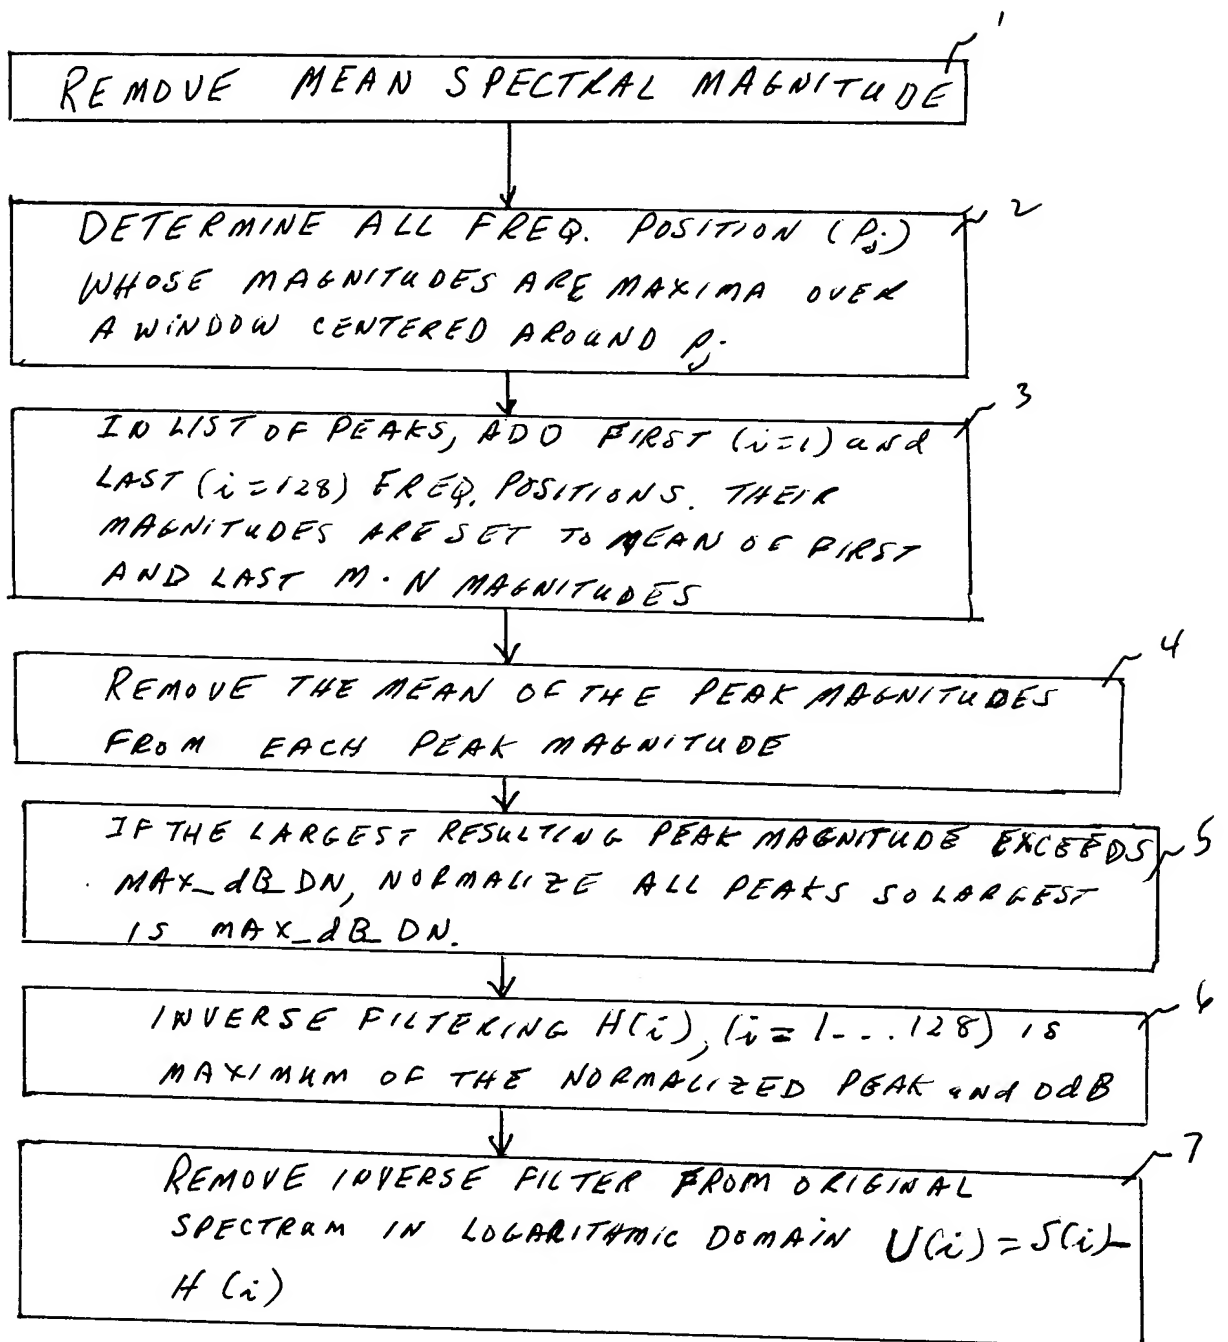 1
REMOVE MEAN SPECTRAL MAGNITUDE
2
DETERMINE ALL FREQ. POSITION (Pj)
WHOSE MAGNITUDES ARE MAXIMA OVER
A WINDOW CENTERED AROUND Pj.
3
IN LIST OF PEAKS, ADD FIRST (i=1) and
LAST (i=128) FREQ. POSITIONS. THEIR
MAGNITUDES ARE SET TO MEAN OF FIRST
AND LAST M·N MAGNITUDES
4
REMOVE THE MEAN OF THE PEAK MAGNITUDES
FROM EACH PEAK MAGNITUDE
5
IF THE LARGEST RESULTING PEAK MAGNITUDE EXCEEDS
MAX_dB_DN, NORMALIZE ALL PEAKS SO LARGEST
IS MAX_dB_DN.
6
INVERSE FILTERING H(i), (i=1---.128) IS
MAXIMUM OF THE NORMALIZED PEAK and 0dB
7
REMOVE INVERSE FILTER FROM ORIGINAL
SPECTRUM IN LOGARITHMIC DOMAIN U(i)=S(i)-
H(i)